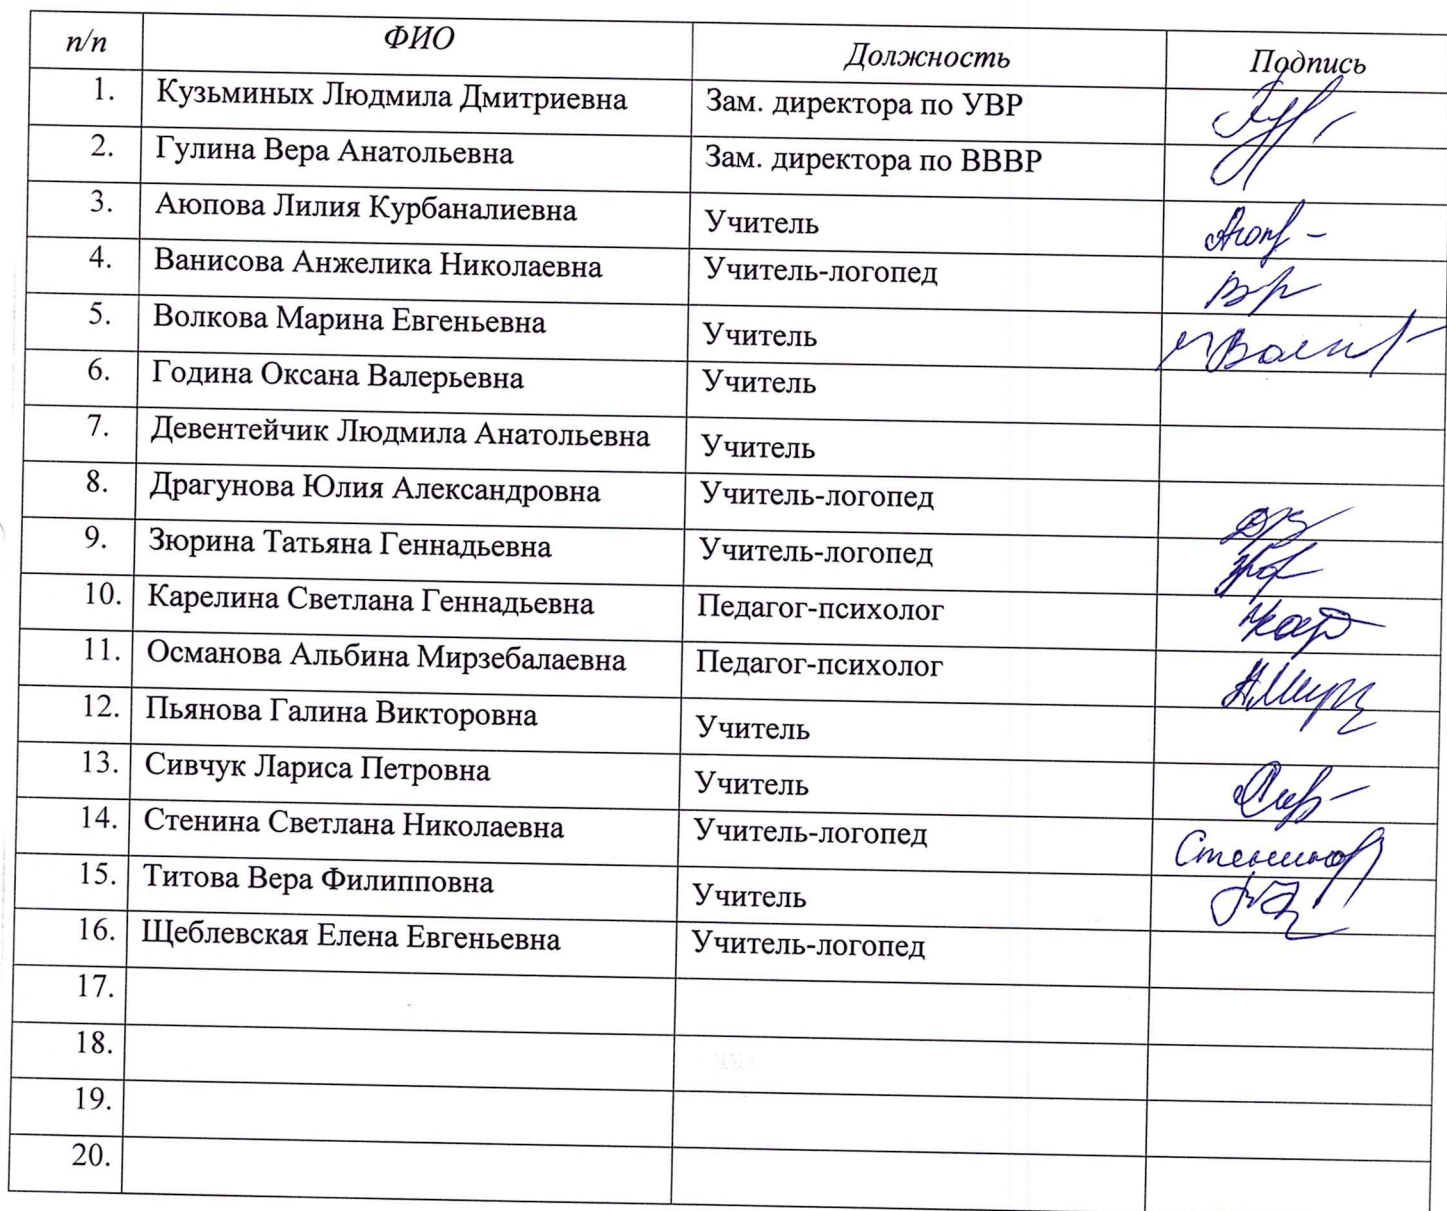 п/п ФИО Должность Подпись
1. Кузьминых Людмила Дмитриевна Зам. директора по УВР
2. Гулина Вера Анатольевна Зам. директора по ВВВР
3. Аюпова Лилия Курбаналиевна Учитель
4. Ванисова Анжелика Николаевна Учитель-логопед
5. Волкова Марина Евгеньевна Учитель
6. Година Оксана Валерьевна Учитель
7. Девентейчик Людмила Анатольевна Учитель
8. Драгунова Юлия Александровна Учитель-логопед
9. Зюрина Татьяна Геннадьевна Учитель-логопед
10. Карелина Светлана Геннадьевна Педагог-психолог
11. Османова Альбина Мирзебалаевна Педагог-психолог
12. Пьянова Галина Викторовна Учитель
13. Сивчук Лариса Петровна Учитель
14. Стенина Светлана Николаевна Учитель-логопед
15. Титова Вера Филипповна Учитель
16. Щеблевская Елена Евгеньевна Учитель-логопед
17.
18.
19.
20.